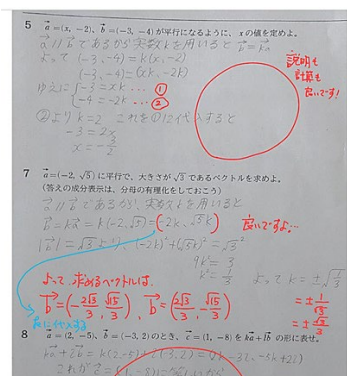 5 a⃗=(x, -2)、b⃗=(-3, -4) が平行になるように、xの値を定めよ。
a⃗//b⃗であるから実数kを用いると b⃗=ka⃗
よって (-3, -4)=k(x, -2)
(-3, -4)=(xk, -2k)
ゆえに{-3=xk … ①
{-4=-2k … ②
②より k=2 これを①に代入すると
-3=2x
x=-3/2
説明も
計算も
良いです!
7 a⃗=(-2, √5) に平行で、大きさが√3であるベクトルを求めよ。
(答えの成分表示は、分母の有理化をしておこう)
a⃗//b⃗であるから、実数kを用いると
b⃗=ka⃗=k(-2, √5)=(-2k, √5k) 良いですよ…
|b⃗|=√3より、(-2k)²+(√5k)²=√3²
9k²=3
k²=1/3 よって k=±√1/3
=±1/√3
=±√3/3
よって、求めるベクトルは
b⃗=(-2√3/3, √15/3)、b⃗=(2√3/3, -√15/3)
に代入する
8 a⃗=(2, -5)、b⃗=(-3, 2)のとき、c⃗=(1, -8)をka⃗+lb⃗ の形に表せ。